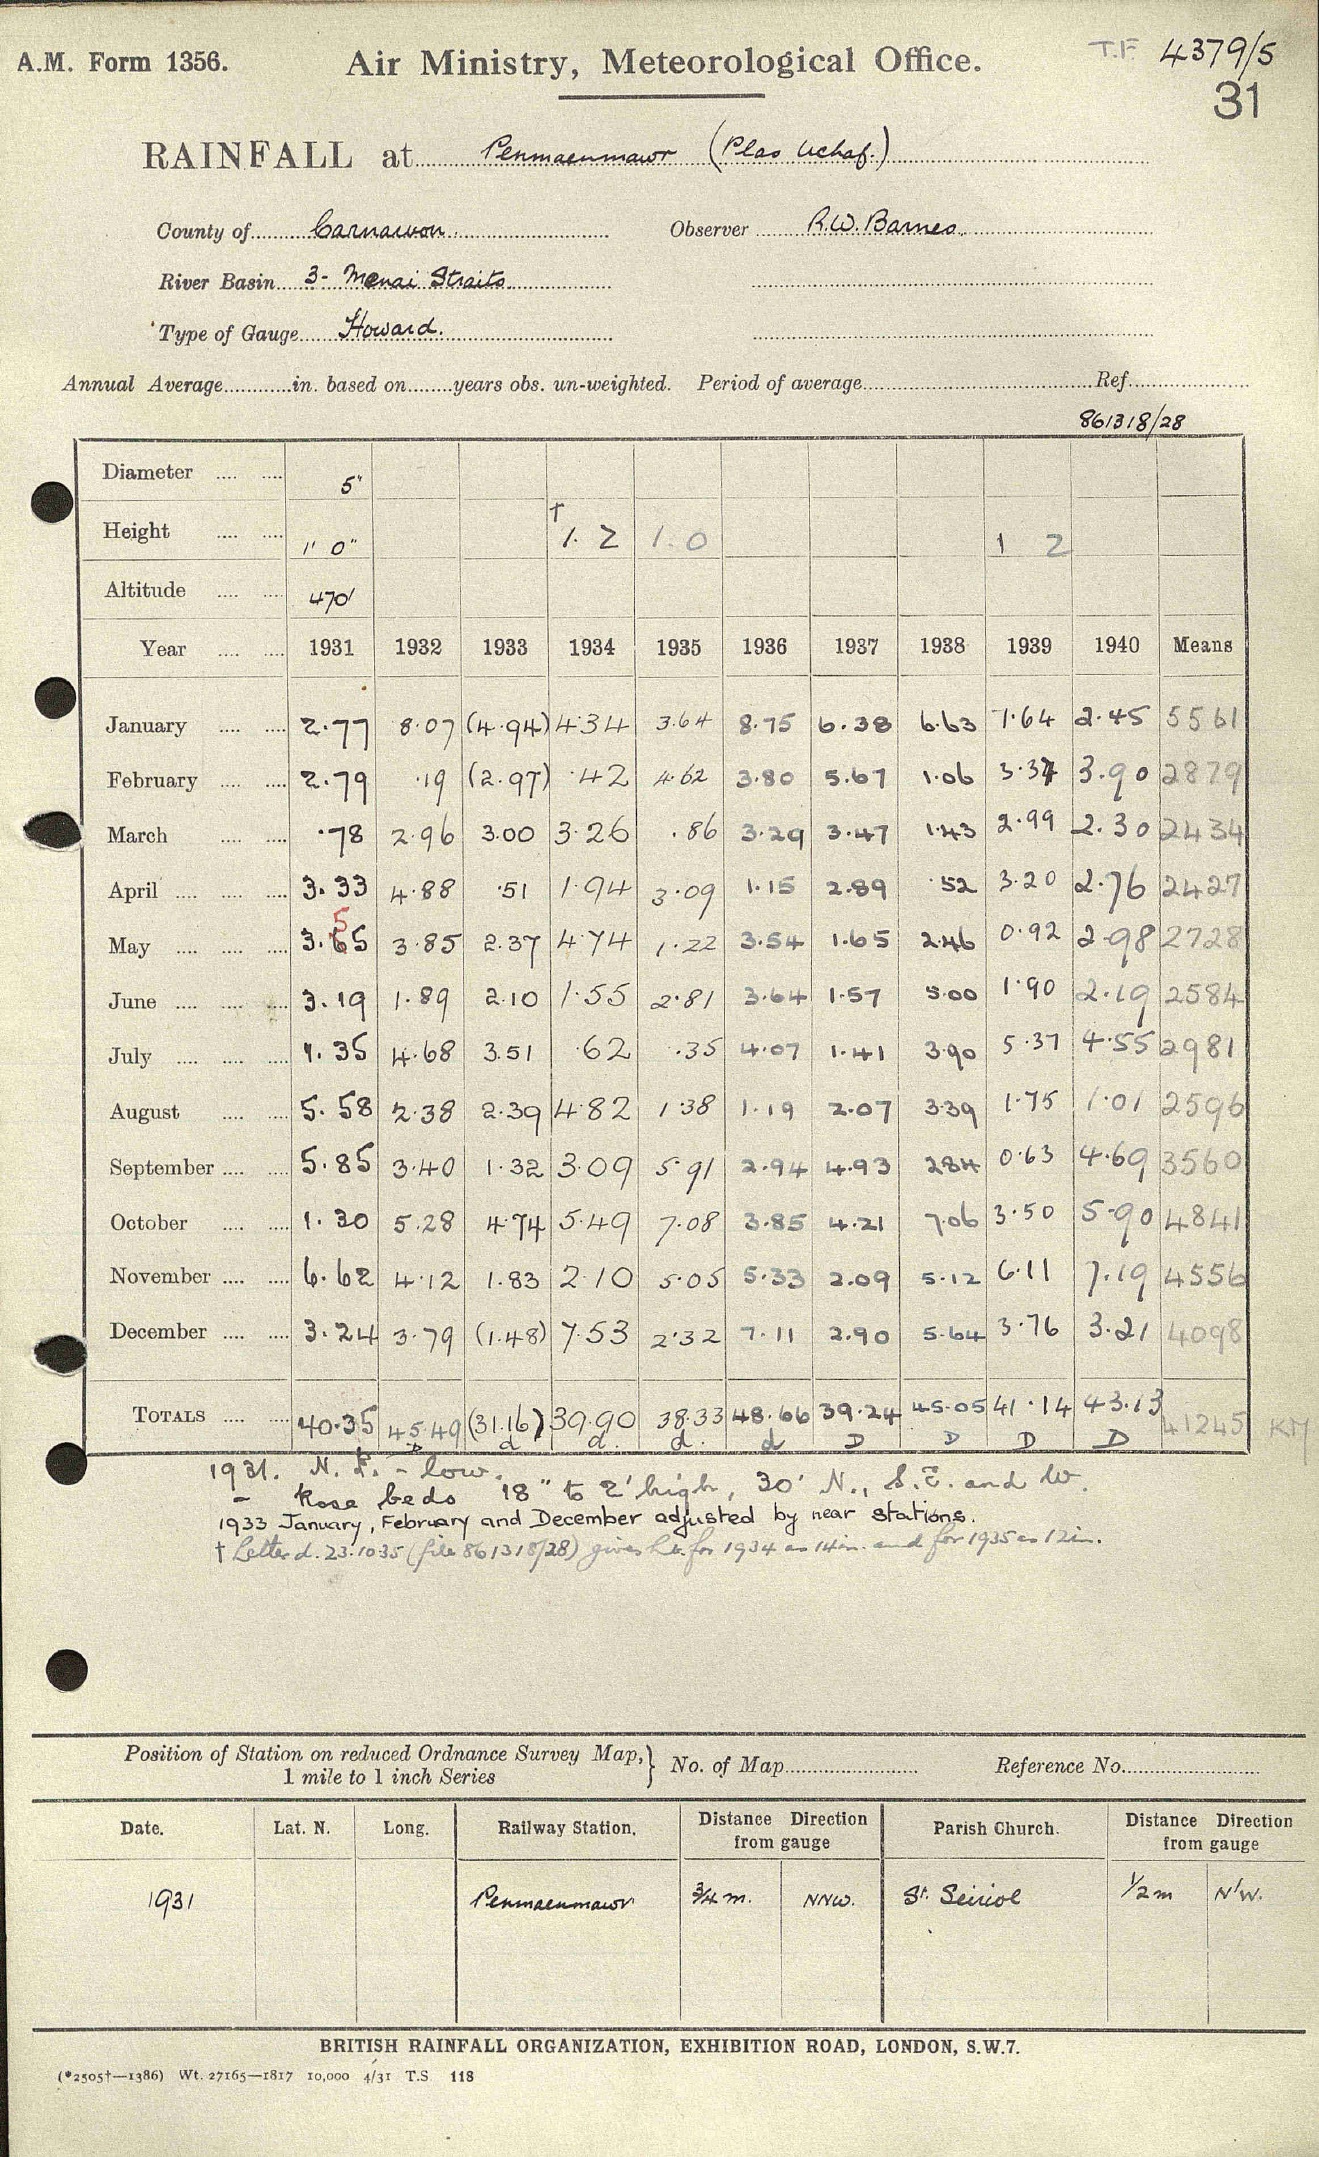 A.M. Form 1356. Air Ministry, Meteorological Office. T.F. 4379/5
31
RAINFALL at Penmaenmawr (Plas Uchaf.)
County of Carnarvon. Observer R.W. Barnes.
River Basin 3- Menai Straits
Type of Gauge Howard.
Annual Average in. based on years obs. un-weighted. Period of average Ref
861318/28
Diameter 5"
Height 1' 0" † 1. 2 1. 0 1 2
Altitude 470'
Year 1931 1932 1933 1934 1935 1936 1937 1938 1939 1940 Means
January 2.77 8.07 (4.94) 4.34 3.64 8.75 6.38 6.63 7.64 2.45 5561
February 2.79 .19 (2.97) .42 4.62 3.80 5.67 1.06 3.37 3.90 2879
March .78 2.96 3.00 3.26 .86 3.29 3.47 1.43 2.99 2.30 2434
April 3.33 4.88 .51 1.94 3.09 1.15 2.89 .52 3.20 2.76 2427
5
May 3.65 3.85 2.37 4.74 1.22 3.54 1.65 2.46 0.92 2.98 2728
June 3.19 1.89 2.10 1.55 2.81 3.64 1.57 5.00 1.90 2.19 2584
July 1.35 4.68 3.51 .62 .35 4.07 1.41 3.90 5.37 4.55 2981
August 5.58 2.38 2.39 4.82 1.38 1.19 2.07 3.39 1.75 1.01 2596
September 5.85 3.40 1.32 3.09 5.91 2.94 4.93 2.84 0.63 4.69 3560
October 1.30 5.28 4.74 5.49 7.08 3.85 4.21 7.06 3.50 5.90 4841
November 6.62 4.12 1.83 2.10 5.05 5.33 2.09 5.12 6.11 7.19 4556
December 3.24 3.79 (1.48) 7.53 2.32 7.11 2.90 5.64 3.76 3.21 4098
TOTALS 40.35 45.49 (31.16) 39.90 38.33 48.66 39.24 45.05 41.14 43.13 41245 KM
D d d. d. d D D D D
1931. N. E. - low.
- Rose beds 18" to 2' high, 30' N., S.E. and W.
1933 January, February and December adjusted by near stations.
† Letter d. 23.10.35 (file 861318/28) gives ht. for 1934 as 14in. and for 1935 as 12in.
Position of Station on reduced Ordnance Survey Map, } No. of Map Reference No.
1 mile to 1 inch Series
Date. Lat. N. Long. Railway Station. Distance Direction from gauge Parish Church. Distance Direction from gauge
1931 Penmaenmawr 3/4 m. NNW. St. Seiriol 1/2 m N'W.
BRITISH RAINFALL ORGANIZATION, EXHIBITION ROAD, LONDON, S.W.7.
(*2505†—1386) Wt. 27165—1817 10,000 4/31 T.S. 118